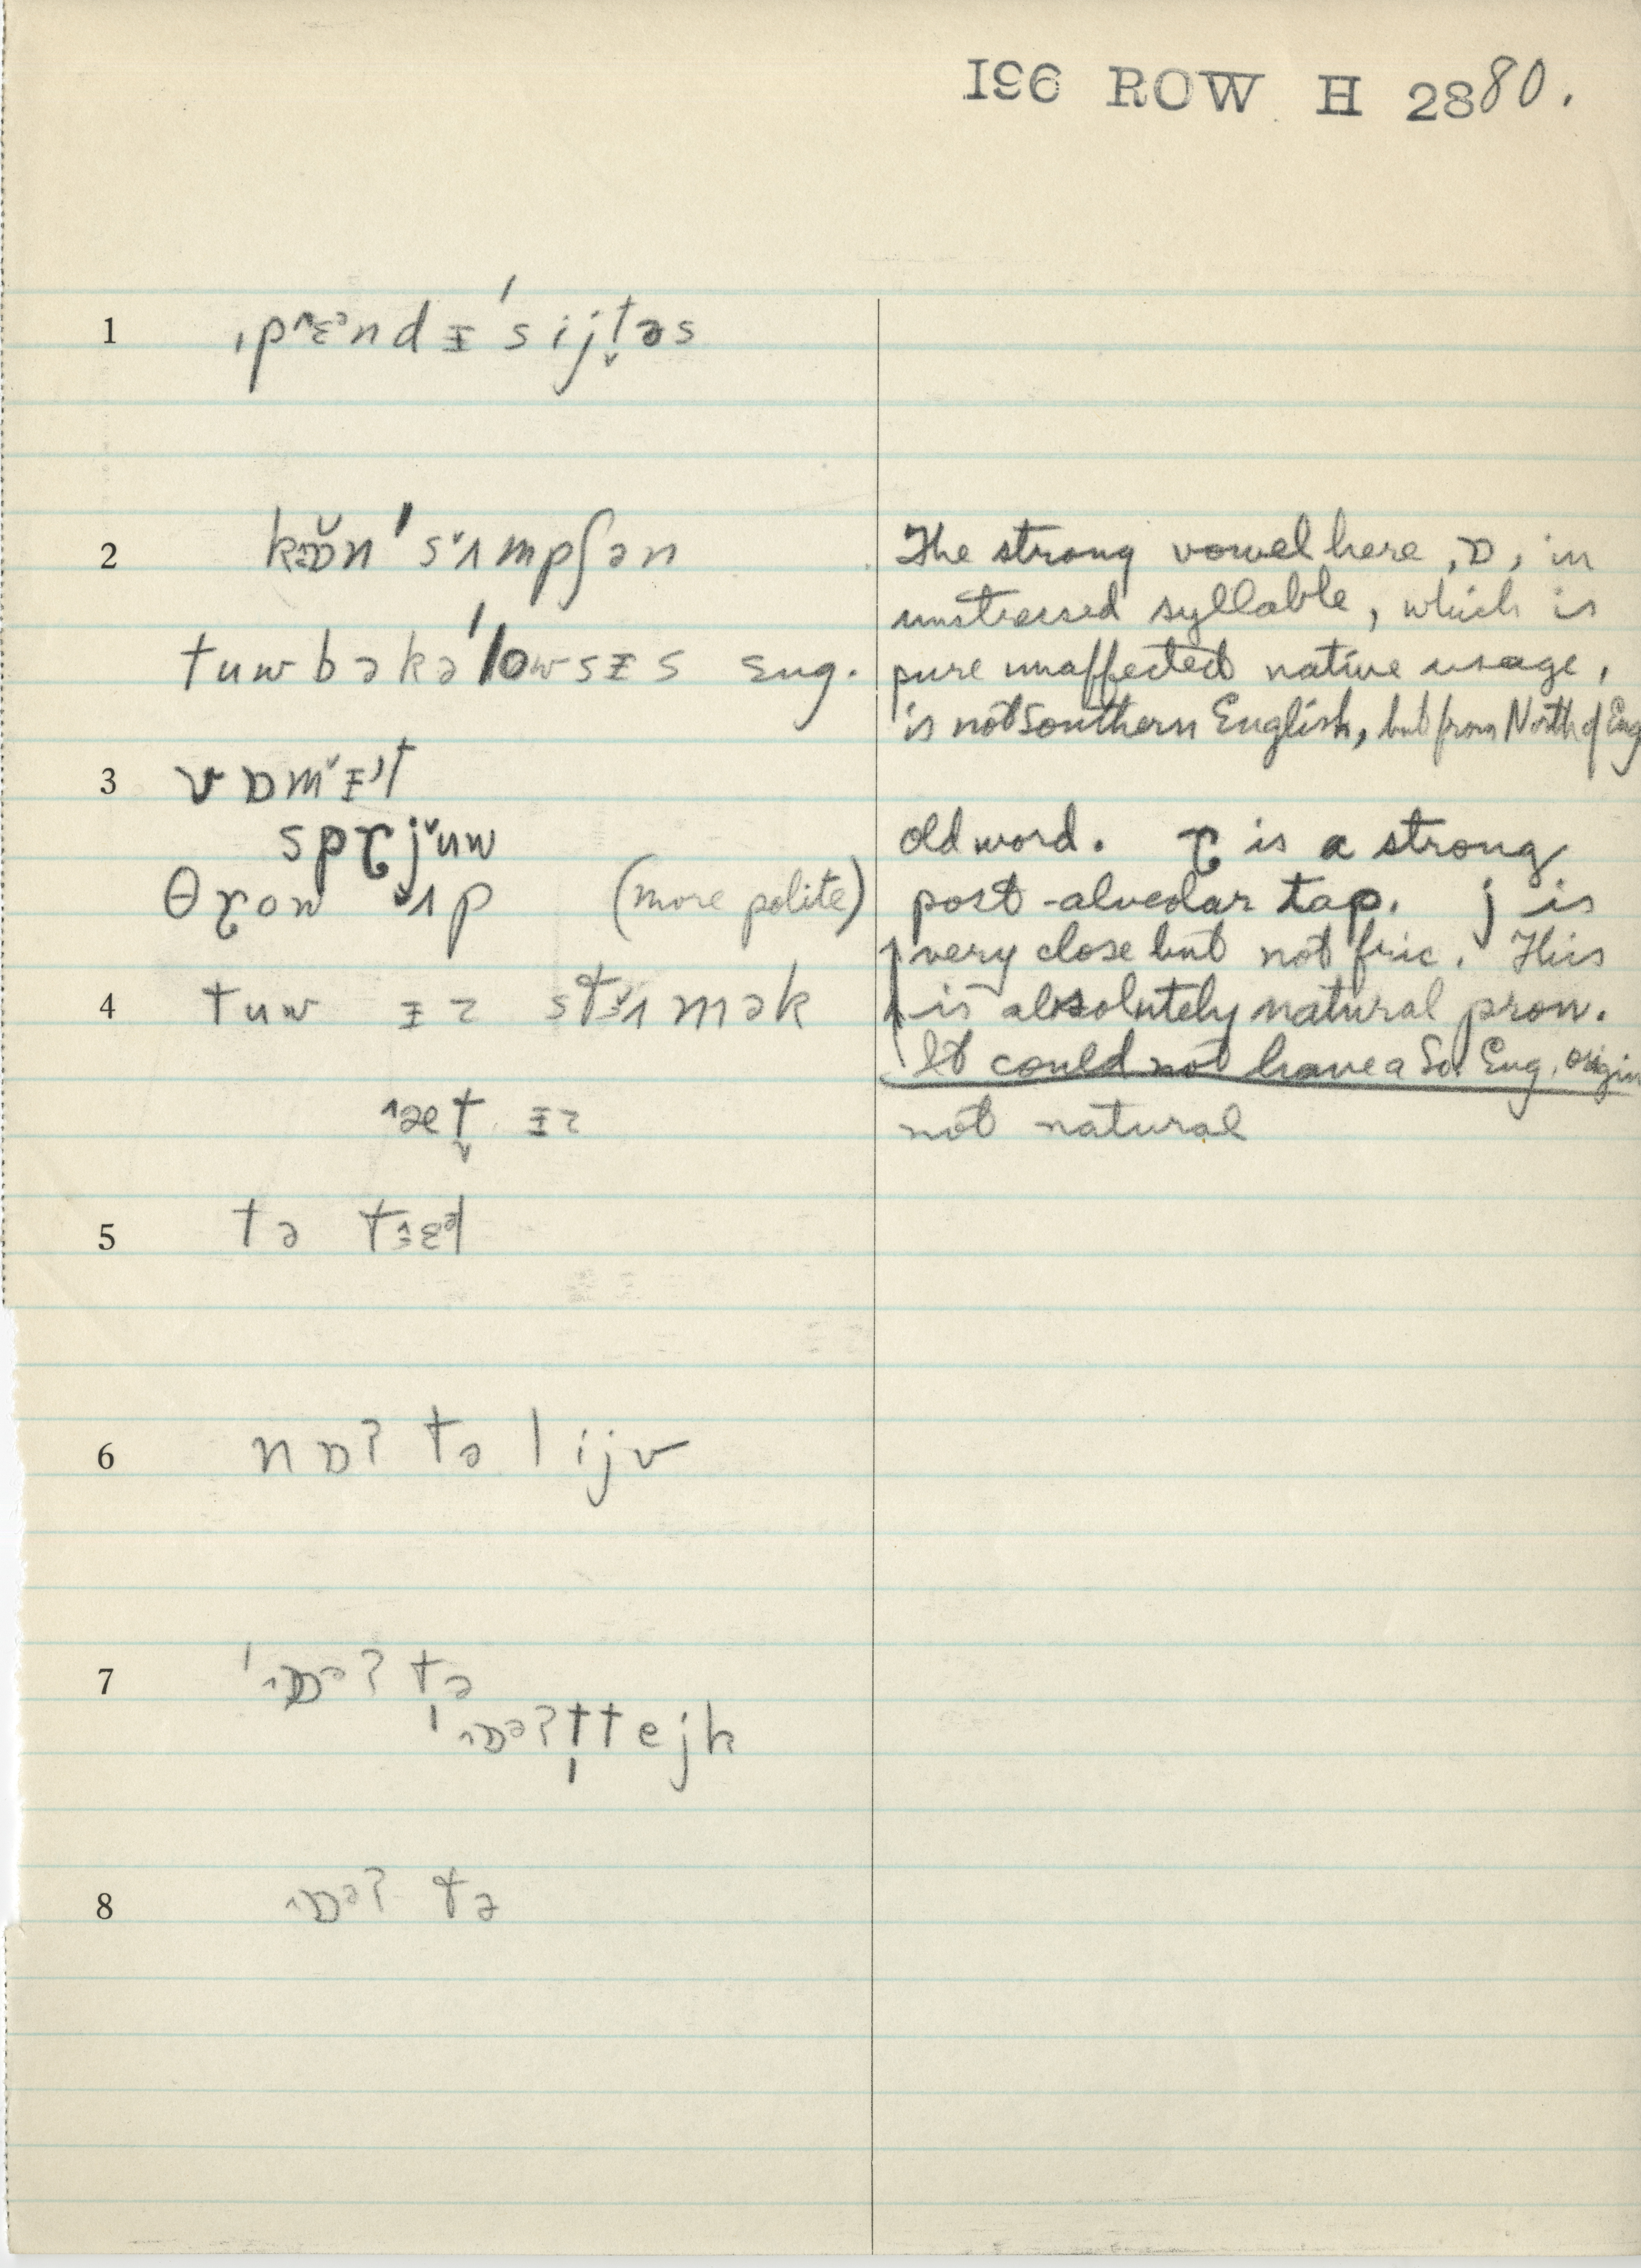 196 ROW H 2880.
1 ˌpɛ^ə nd ᵻ ˈsijt̬əs
2 kɒ̆n ˈsʌmpʃən The strong vowel here, ɒ, in
unstressed syllable, which is
tuwbəkəˈlowsᵻs Eng. pure unaffected native usage,
is not Southern English, but from North of Eng
3 vɒmᵻt
spɽjuw old word. ɽ is a strong
θɽow ʌp (more polite) post-alveolar tap. j is
very close but not fric. This
4 tuw ᵻz stʌmək is absolutely natural pron.
It could not have a So. Eng. origin
æt̬ ᵻz not natural
5 tə tɛəl
6 nɒʔ tə lijv
7 ˈɒəʔ tə
ˈɒəʔt̩tejk
8 ɒəʔ tə